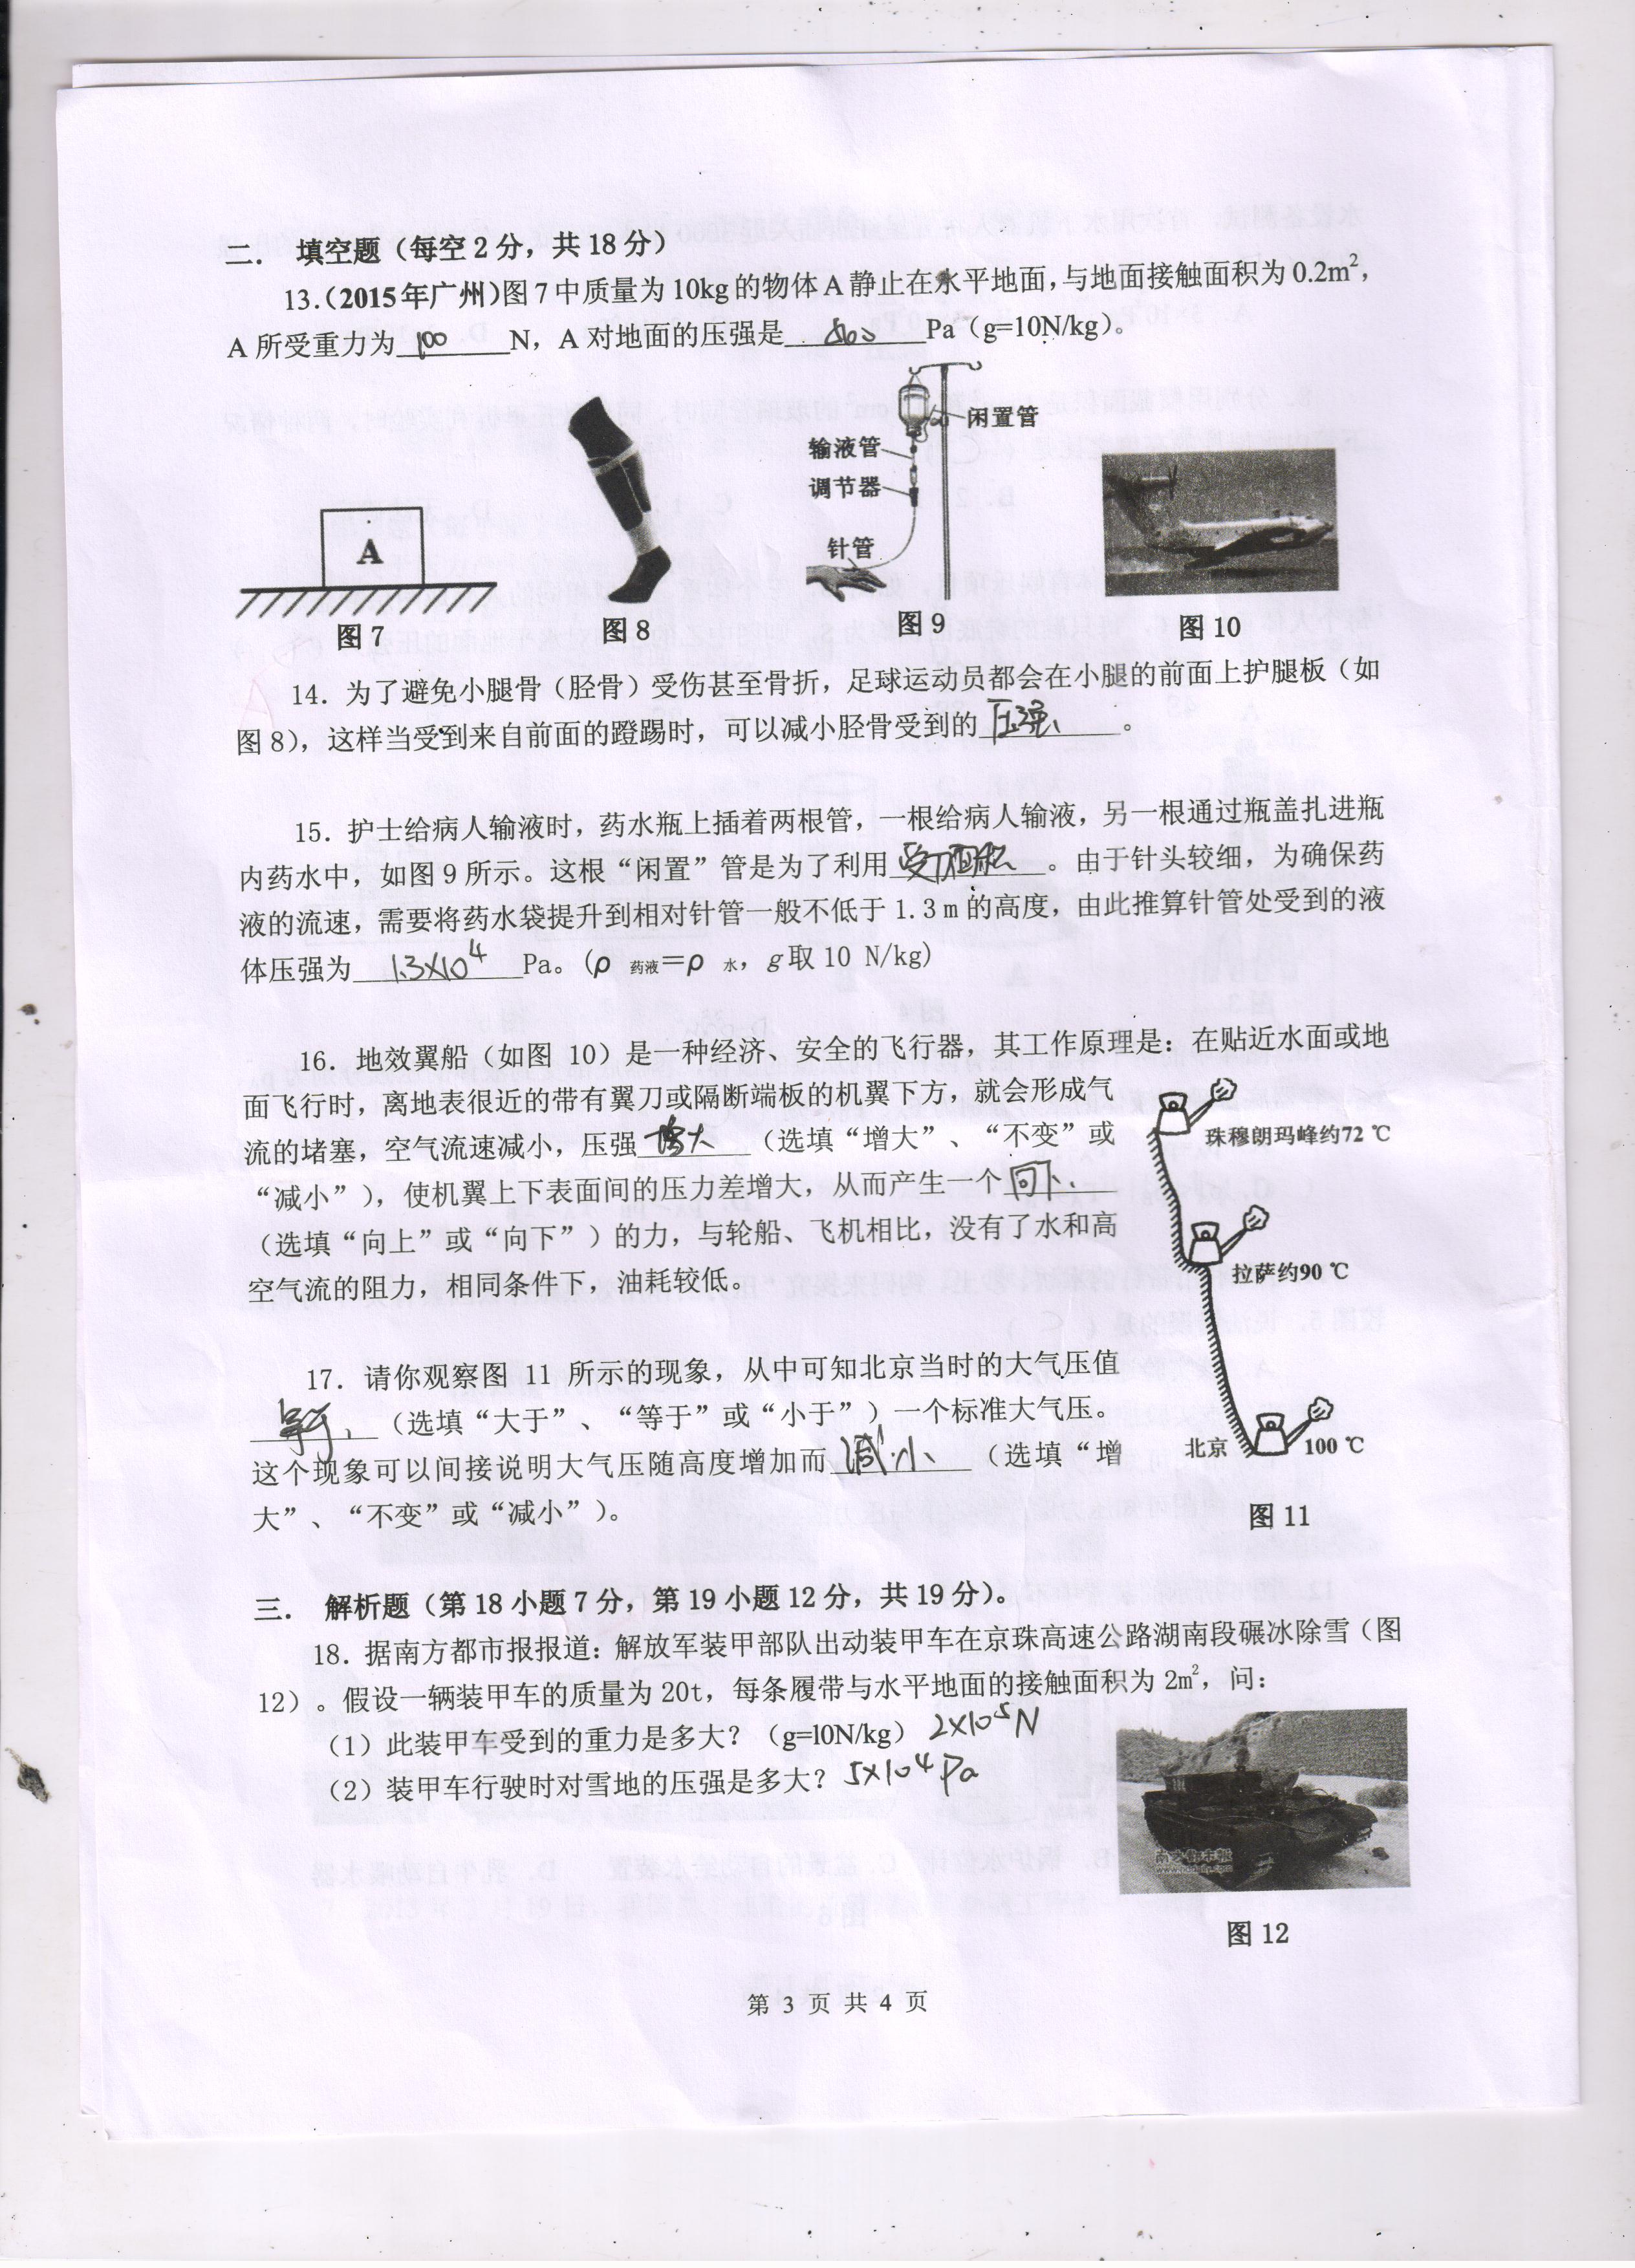 二． 填空题（每空2分，共18分）
13.（2015年广州）图7中质量为10kg的物体A静止在水平地面，与地面接触面积为0.2m²，
A所受重力为 100 N，A对地面的压强是 500 Pa（g=10N/kg）。
闲置管
输液管
调节器
针管
A
图7
图8
图9
图10
14．为了避免小腿骨（胫骨）受伤甚至骨折，足球运动员都会在小腿的前面上护腿板（如
图8），这样当受到来自前面的蹬踢时，可以减小胫骨受到的 压强 。
15．护士给病人输液时，药水瓶上插着两根管，一根给病人输液，另一根通过瓶盖扎进瓶
内药水中，如图9所示。这根“闲置”管是为了利用 受力面积 。由于针头较细，为确保药
液的流速，需要将药水袋提升到相对针管一般不低于1.3m的高度，由此推算针管处受到的液
体压强为 1.3×10⁴ Pa。(ρ 药液＝ρ 水，g取10 N/kg)
16．地效翼船（如图 10）是一种经济、安全的飞行器，其工作原理是：在贴近水面或地
面飞行时，离地表很近的带有翼刀或隔断端板的机翼下方，就会形成气
流的堵塞，空气流速减小，压强 增大 （选填“增大”、“不变”或
“减小”），使机翼上下表面间的压力差增大，从而产生一个 向下
（选填“向上”或“向下”）的力，与轮船、飞机相比，没有了水和高
空气流的阻力，相同条件下，油耗较低。
珠穆朗玛峰约72 ℃
拉萨约90 ℃
北京 100 ℃
图11
17．请你观察图 11 所示的现象，从中可知北京当时的大气压值
等于 （选填“大于”、“等于”或“小于”）一个标准大气压。
这个现象可以间接说明大气压随高度增加而 减小 （选填“增
大”、“不变”或“减小”）。
三． 解析题（第18小题7分，第19小题12分，共19分）。
18．据南方都市报报道：解放军装甲部队出动装甲车在京珠高速公路湖南段碾冰除雪（图
12）。假设一辆装甲车的质量为20t，每条履带与水平地面的接触面积为2m²，问：
（1）此装甲车受到的重力是多大？（g=l0N/kg） 2×10⁵N
（2）装甲车行驶时对雪地的压强是多大？ 5×10⁴Pa
图12
第 3 页 共 4 页